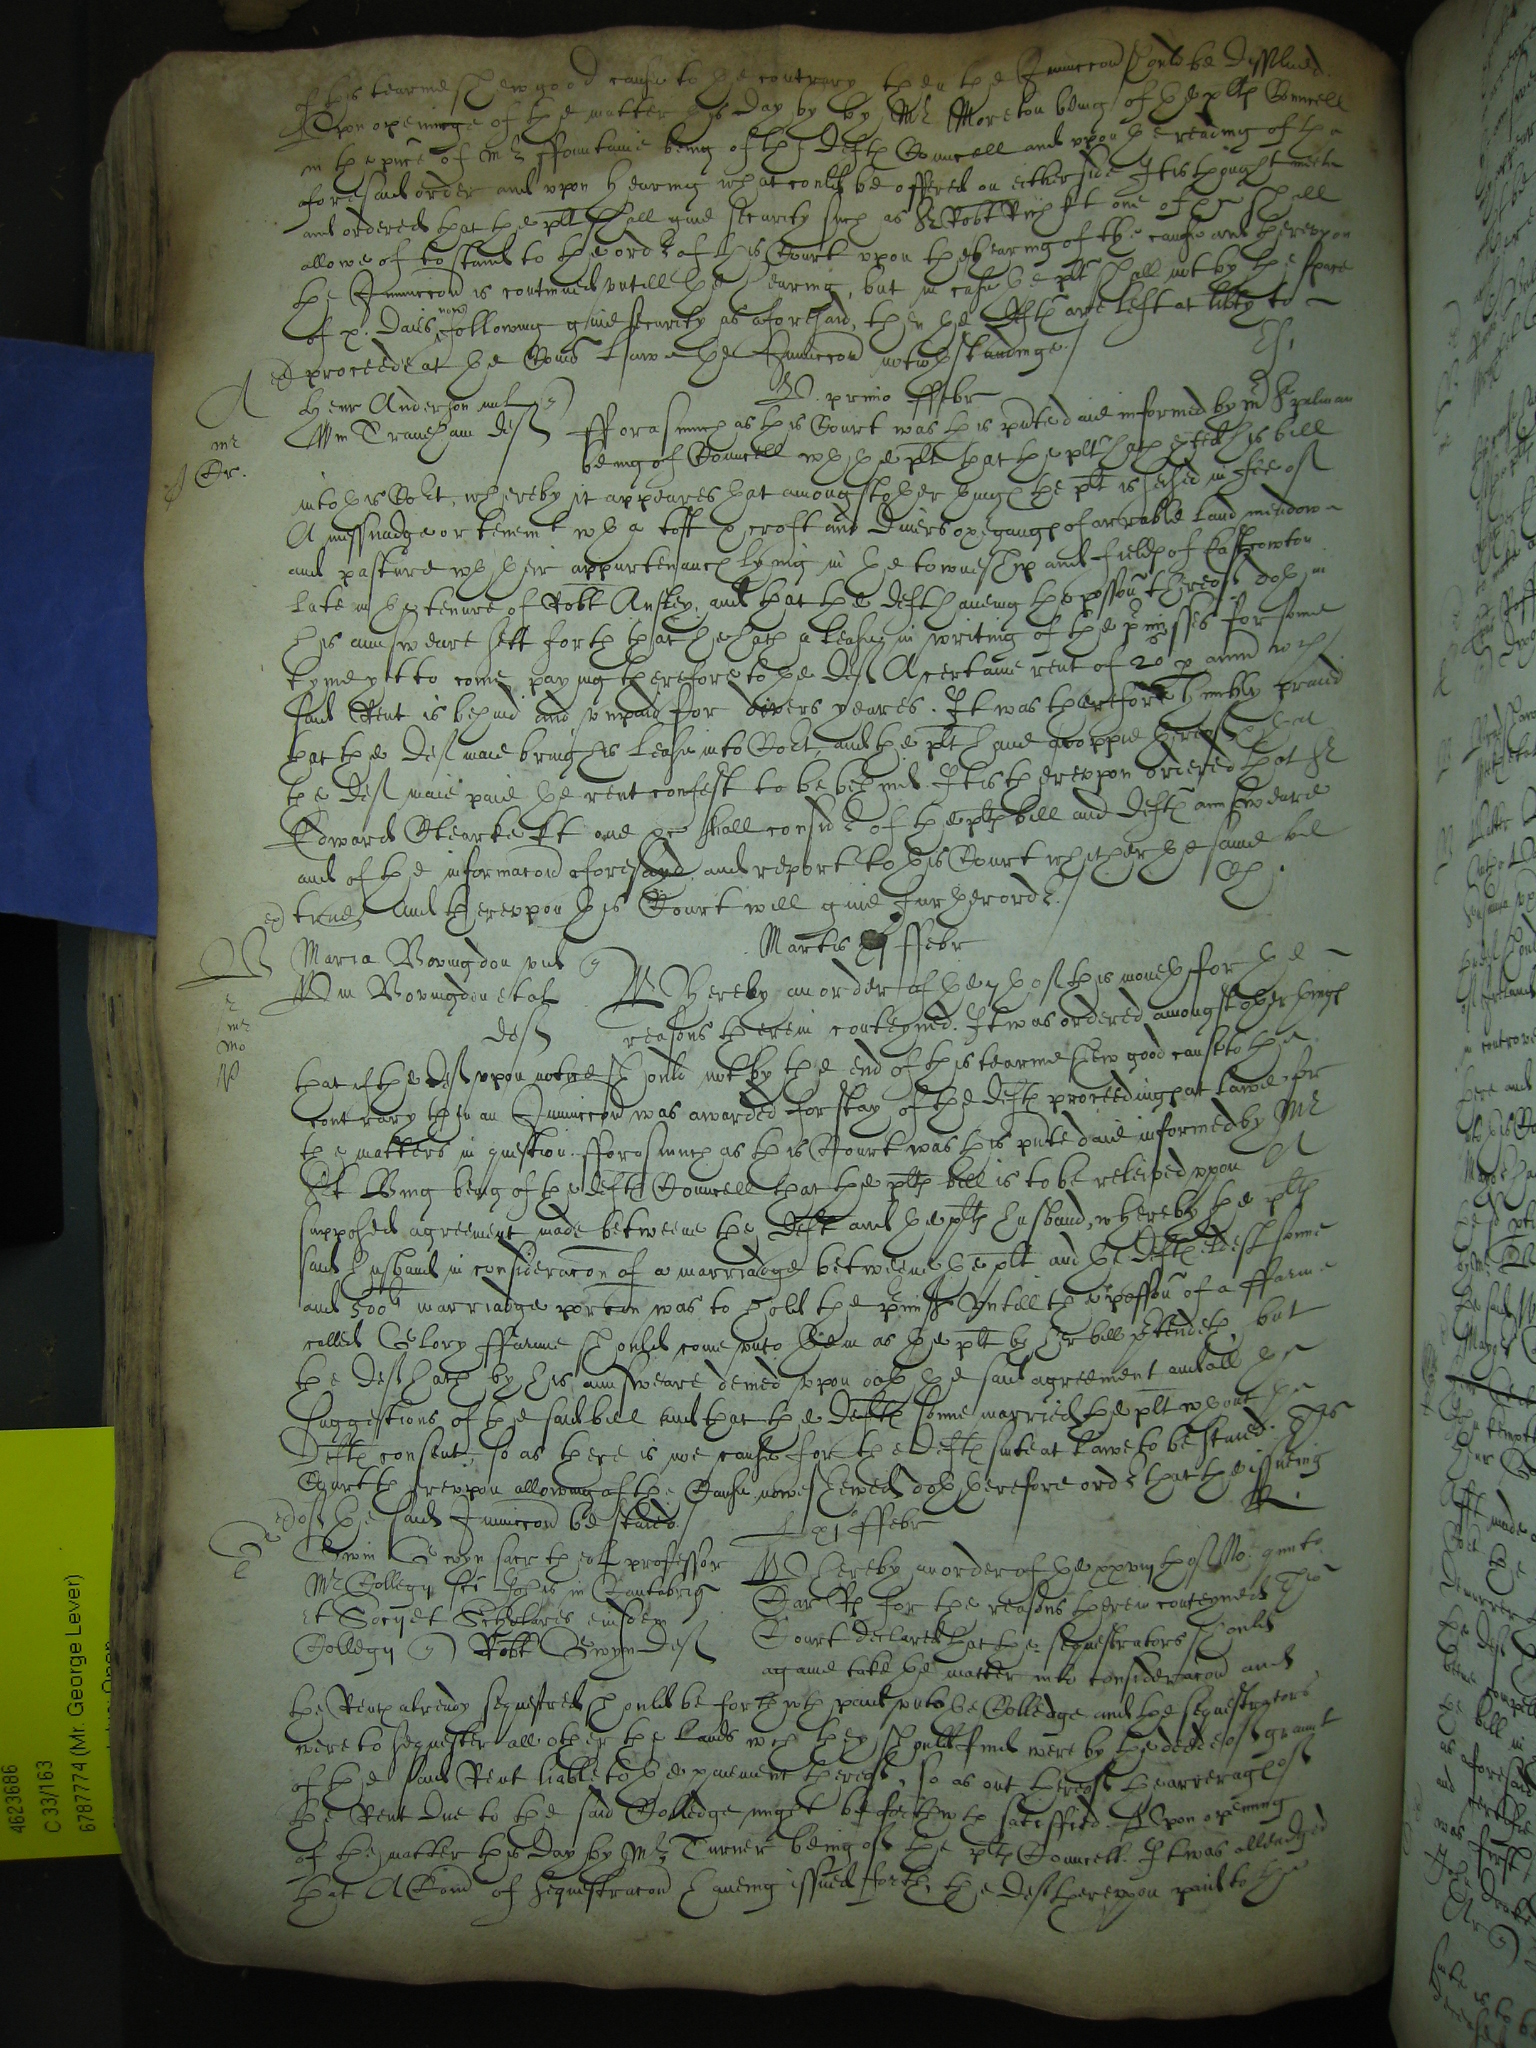 of this tearme shew good cause to the contrary then the Iniunccon should be dissolued.
Vpon openinge of the matter this day by by Mr Moreton being of the plts Councell
in the pnce of Mr ffountaine being of the Defts Councell and vpon the reading of the
aforesaid order and vpon hearing what could be offered on either side It is thought meete
and ordered that the plt shall giue security such as Sr Robt Rich kt one of the shall
allowe of to stand to the order of this Court vpon the hearing of the cause and therevpon
the Iniunccon is continued vntill the hearing, but in case the plt shall not by the space
of xn daies next following giue security as aforesaid, then the Defts are left at libty to
proceede at the Comon Lawe the Iniunccon notwthstandinge.
primo ffebr
Henr Anderson mil
Wm Traneham def
fforasmuch as this Court was this pnte daie informed by Mr Spelman
being of Councell wth the plt that the plt hath exted his bill
into this Cort, whereby it appeares that amongst other things the plt is seised in fee of
A messuadge or tenemt wth a toft croft and diuers oxegangs of arrable land meadow
and pasture wth their appurtenancs lying in the towneshipp and fields of East Cowton
late in the tenure of Robt Ansley, and that the deft haueing the possion thereof doth in
his answeare sett forth that he hath a lease in writing of the pmisses for some
tyme yett to come, paying therefore to the def A certaine rent of 20li p annu wch
said Rent is behind and vnpaid for divers yeares. It was therefore humbly praied
that the def maie bring his lease into Cort, and the plt haue a coppie thereof & that
the def maie paie the rent confest to be behind. It is therevpon ordered that Sr
Edward Clearke kt one &c shall consider of the plts bill and defts answeare
and of the informacon aforesayd and report to this Court whether the same bee
true, and therevpon this Court will giue further order.
Martis ffebr
Maria Bovingdon vid
Wm Bovingdon et al
def
Whereby an order of the 7 of this moneth for the
reasons therein conteyned. It was ordered amongst other things
that if the def vpon notice should not by the end of this tearme shew good cause to the
contrary then an Iniunccon was awarded for stay of the defts proceedings at lawe for
the matters in question. fforasmuch as this Court was this pnte daie informed by Mr
King being of the defts Councell that the plts bill is to be releived vpon A
supposed agreement made betweene the deft and the plts husband, whereby the plts
said husband in consideracon of a marriadge betweene the plt and the defts eldest sonne
and 500li marriadge porcon was to hold the pmiss vntill the possion of a ffarme
called Glory ffarme should come vnto them as the plt by her bill ptendeth, but
the def hath by his answeare denied vpon oath the said agreement and all the
suggestions of the said bill and that the defts sonne married the plt wthout the
Defts consent, so as there is noe cause for the defts suite at lawe to be staied. This
Court therevpon allowing of the Cause nowe shewed doth therefore order that the issueing
of the said Iniunccon be staied.
xj ffebr
Owin Gwyn sacr theol professor
Mr Collegij sci Johis in Cantabrig
et Socij et Scholares eiusdem
Collegij Robt Gwyn def
Whereby an order of the xxviij of No: quinto
Car Rs for the reasons therein conteyned the
Court declared that the sequestrators should
againe take the matter into consideracon and
the Rents already sequestred should be forthwth paid vnto the Colledge and the sequestrators
were to sequester all other the lands wch they should find were by the deede of graunt
of the said Rent liable to the paiement thereof, so as out thereof the arrerags of
the Rent due to the said Colledge might be forthwth satisffied. Vpon opening
of the matter this day by Mr Turner being of the plts Councell. It was alleadged
that A Comn of sequestracon haueing issued forth, the def therevpon paid to the
4623686
C 33/163
6787774 (Mr. George Lever)